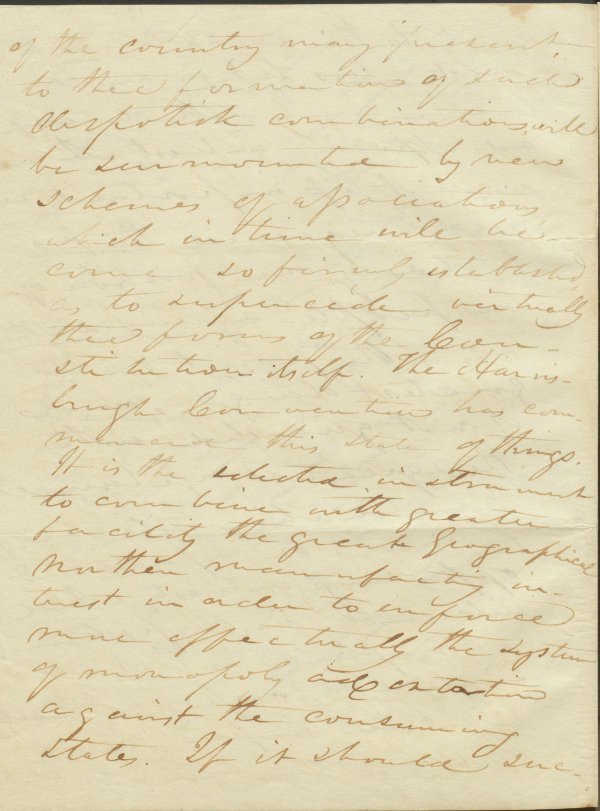 of the country may present,
to the formation of such
despotick combinations, will
be surmounted by new
schemes of associations
which in time will be-
come so firmly established
as to supercede virtually
the forms of the Con-
stitution itself. The Harris-
burgh Convention has com-
menced this state of things.
It is the selected instrument
to combine with greater
facility the great Geographical
Northern manufactg in-
trest in order to inforce
more effectually the system
of monopoly and extortion
against the consuming
States. If it should suc-